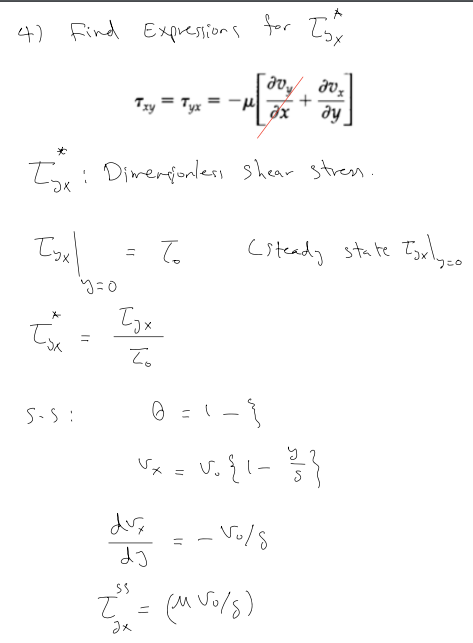 4) Find Expressions for τ*yx
τxy = τyx = −μ[∂vy/∂x + ∂vx/∂y]
τ*yx : Dimensionless shear stress.
τyx|y=0 = τ₀ (steady state τyx|y=0
τ*yx = τyx / τ₀
S-S : θ = 1 − ξ
vx = v₀ {1 − y/δ}
dvx/dy = − v₀/δ
τyx^ss = (μ v₀/δ)